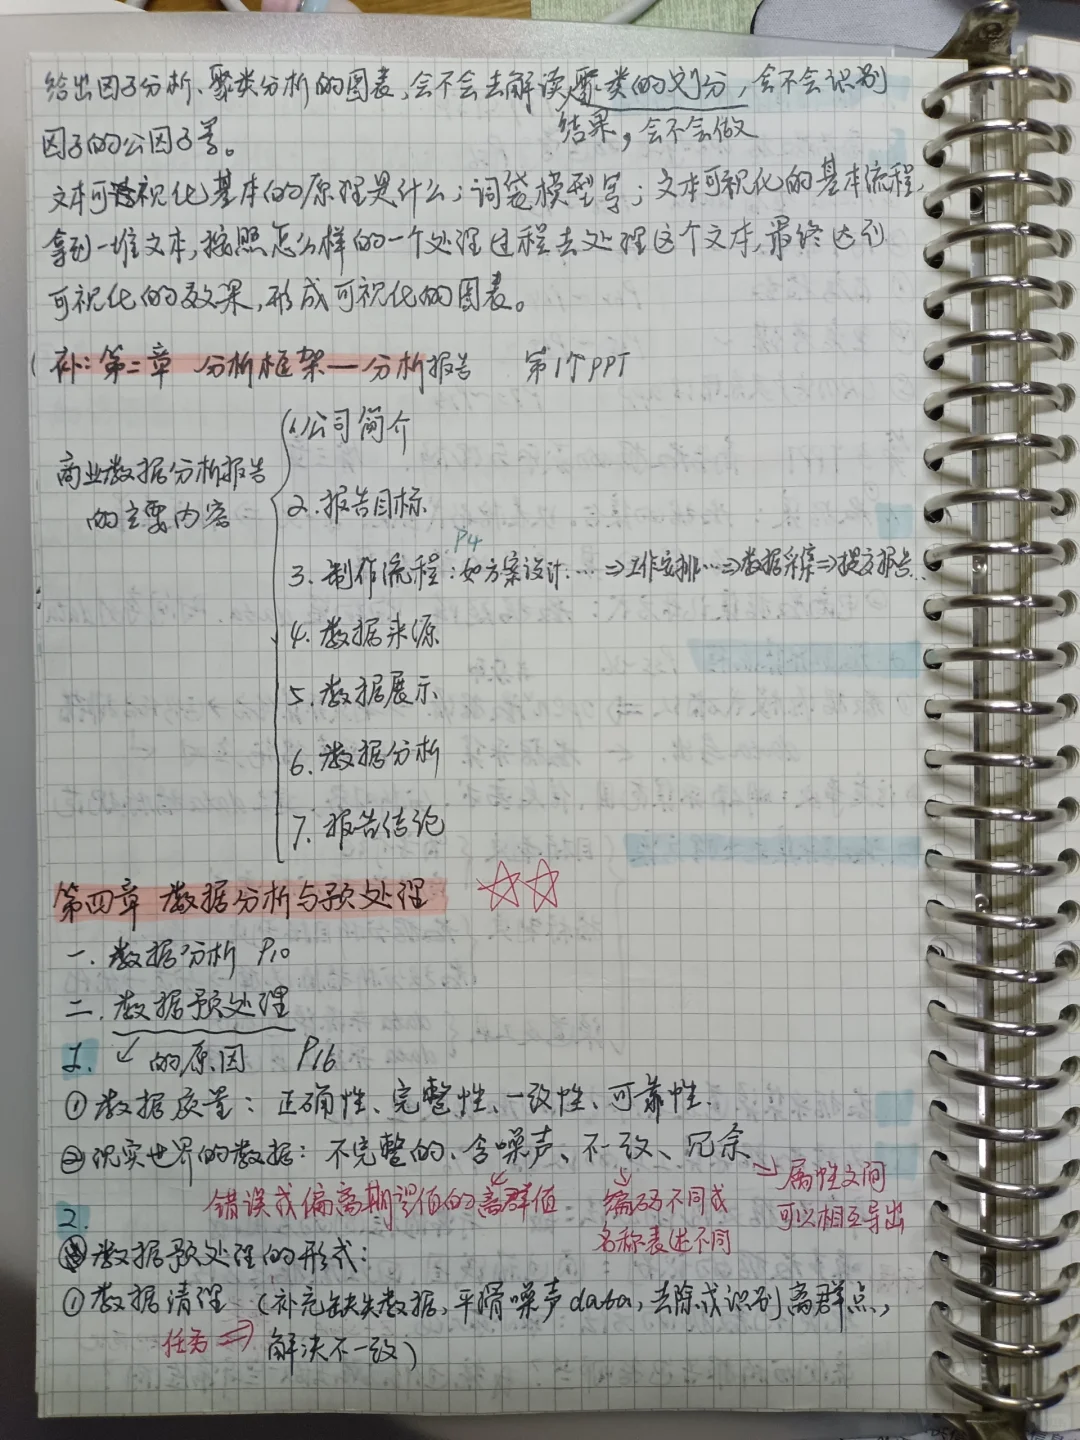 给出因子分析、聚类分析的图表,会不会去解读聚类的划分,会不会识别
结果,会不会做
因子的公因子等。
文本可视化基本的原理是什么;词袋模型等;文本可视化的基本流程,
拿到一堆文本,按照怎么样的一个处理过程去处理这个文本,最终达到
可视化的效果,形成可视化的图表。
补:第二章 分析框架—分析报告 第1个PPT
商业数据分析报告
的主要内容
(1)公司简介
2.报告目标
P4
3.制作流程:如方案设计……⇒工作安排…⇒数据采集⇒提交报告…
4.数据来源
5.数据展示
6.数据分析
7.报告结论
第四章 数据分析与预处理 ☆☆
一.数据分析 P10
二.数据预处理
1. ↙的原因 P16
①数据质量:正确性、完整性、一致性、可靠性.
②现实世界的数据:不完整的、含噪声、不一致、冗余
→属性之间
可以相互导出
错误或偏离期望值的离群值
编码不同或
名称表述不同
2.
数据预处理的形式:
①数据清理 (补充缺失数据,平滑噪声data,去除或识别离群点,
任务⇒ 解决不一致)